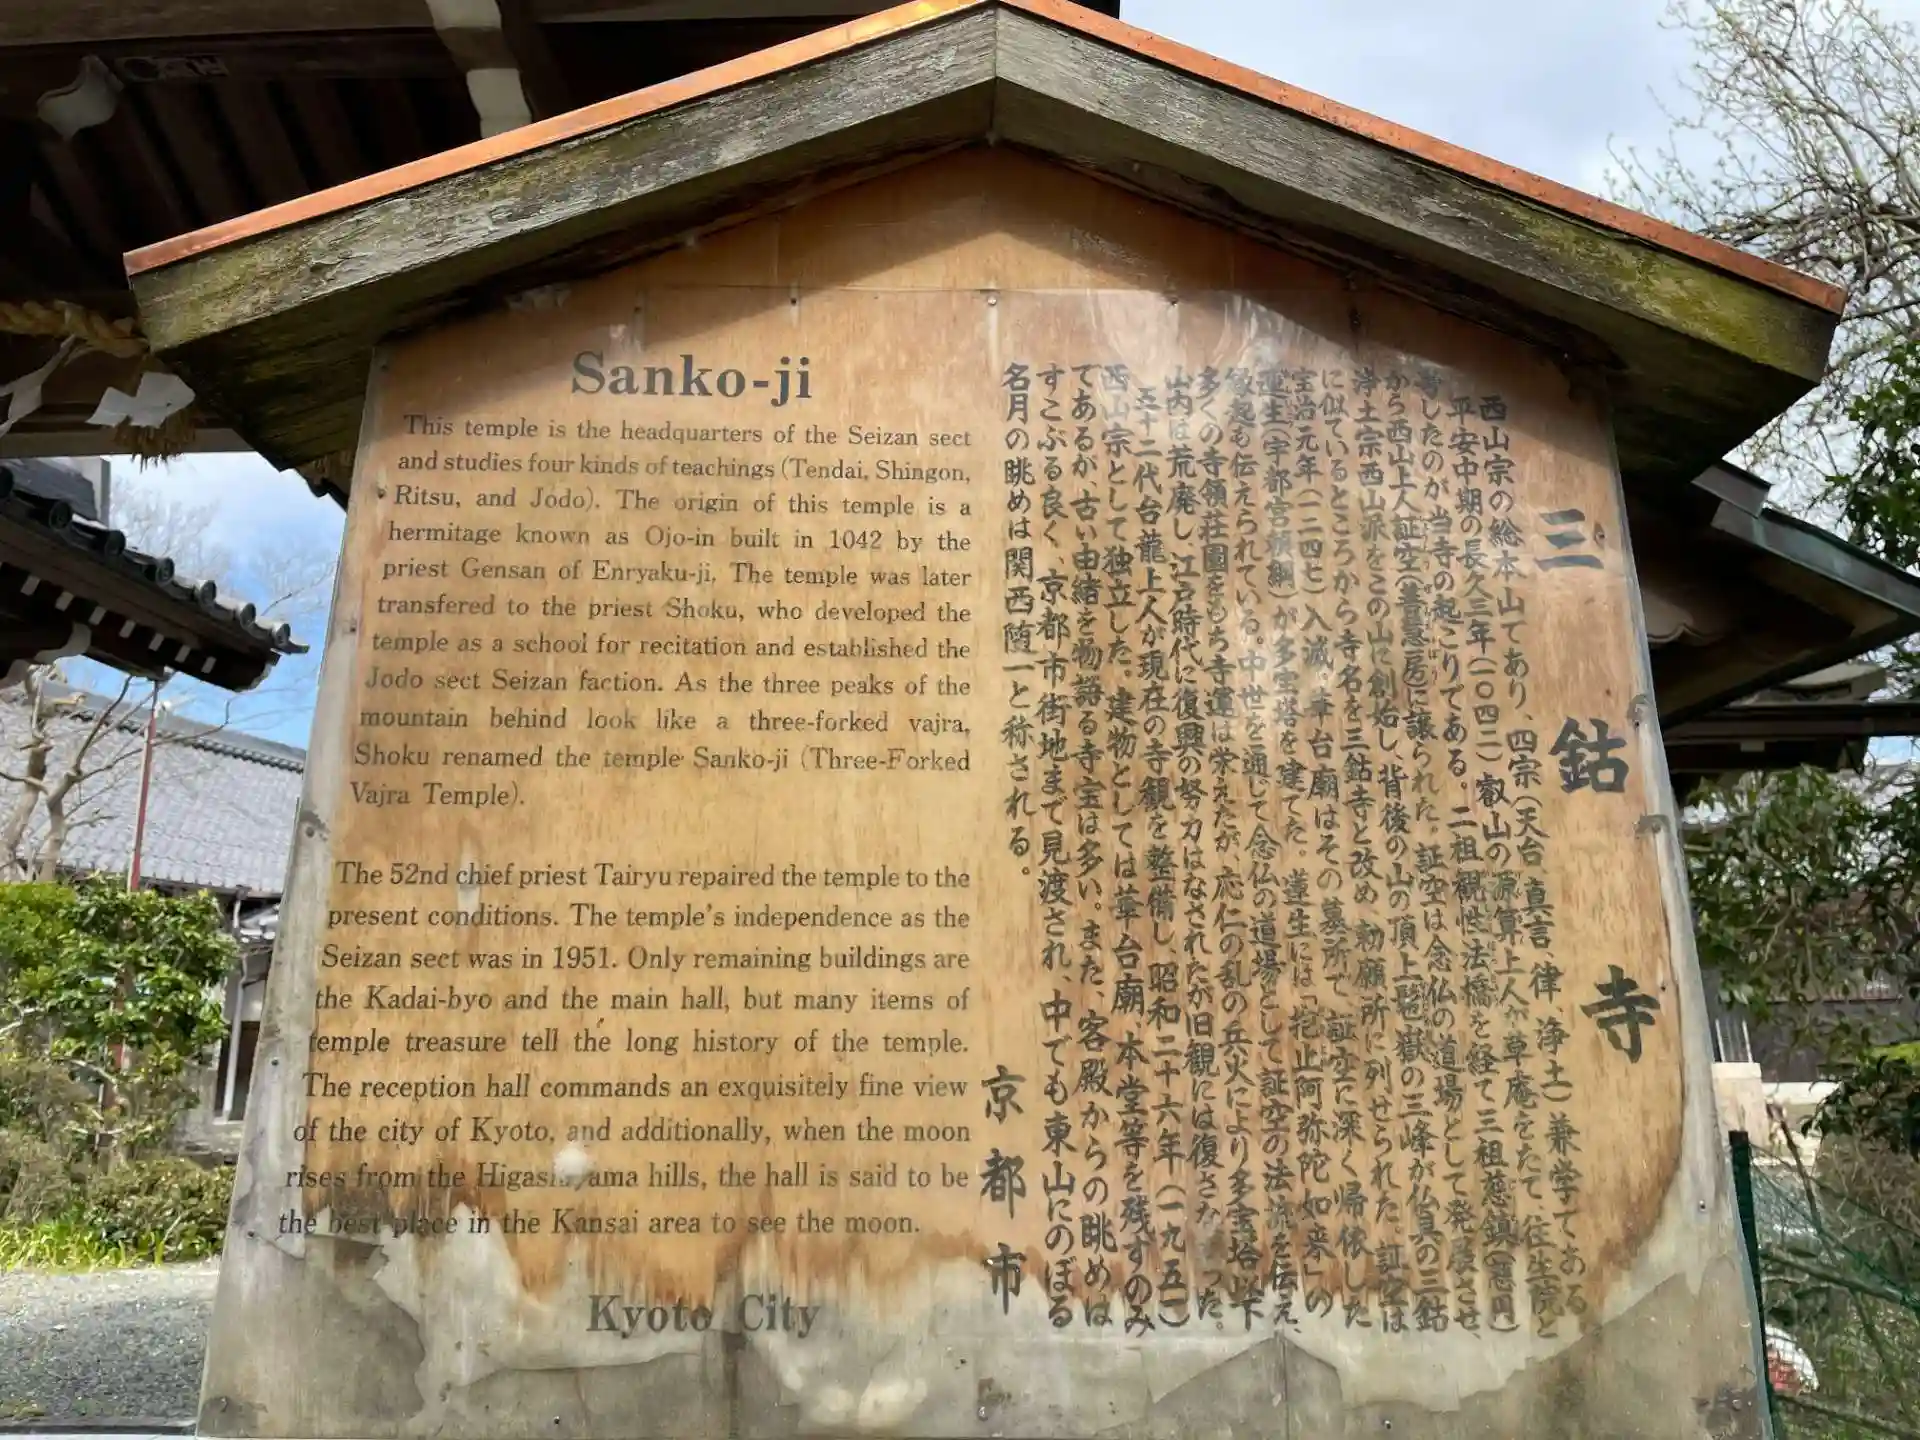 Sanko-ji
This temple is the headquarters of the Seizan sect
and studies four kinds of teachings (Tendai, Shingon,
Ritsu, and Jodo). The origin of this temple is a
hermitage known as Ojo-in built in 1042 by the
priest Gensan of Enryaku-ji. The temple was later
transfered to the priest Shoku, who developed the
temple as a school for recitation and established the
Jodo sect Seizan faction. As the three peaks of the
mountain behind look like a three-forked vajra,
Shoku renamed the temple Sanko-ji (Three-Forked
Vajra Temple).
The 52nd chief priest Tairyu repaired the temple to the
present conditions. The temple's independence as the
Seizan sect was in 1951. Only remaining buildings are
the Kadai-byo and the main hall, but many items of
temple treasure tell the long history of the temple.
The reception hall commands an exquisitely fine view
of the city of Kyoto, and additionally, when the moon
rises from the Higashiyama hills, the hall is said to be
the best place in the Kansai area to see the moon.
Kyoto City
三鈷寺
西山宗の総本山であり、四宗(天台、真言、律、浄土)兼学である。
平安中期の長久三年(一〇四二)叡山の源算上人が草庵をたて、往生院と
号したのが当寺の起こりである。二祖観性法橋を経て三祖慈鎮(慈円)
から西山上人証空(善慧房)に譲られた。証空は念仏の道場として発展させ、
浄土宗西山派をこの山に創始し、背後の山の頂上の三峰が仏具の三鈷
に似ているところから寺名を三鈷寺と改め、勅願所に列せられた。証空は
宝治元年(一二四七)入滅。華台廟はその墓所で、証空に深く帰依した
蓮生(宇都宮頼綱)が多宝塔を建てた。蓮生には「抱止阿弥陀如来」の
縁起も伝えられている。中世を通じて念仏の道場として証空の法流を伝え、
多くの寺領荘園をもち寺運は栄えたが、応仁の乱の兵火により多宝塔以下
山内は荒廃し、江戸時代に復興の努力はなされたが旧観には復さなかった。
五十二代台龍上人が現在の寺観を整備し、昭和二十六年(一九五一)
西山宗として独立した。建物としては華台廟、本堂等を残すのみ
であるが、古い由緒を物語る寺宝は多い。また、客殿からの眺めは
すこぶる良く、京都市街地まで見渡され、中でも東山にのぼる
名月の眺めは関西随一と称される。
京都市